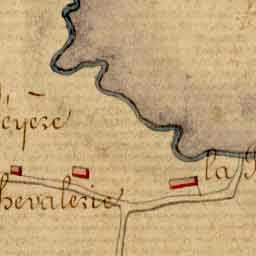 éyère
la
hevalerie